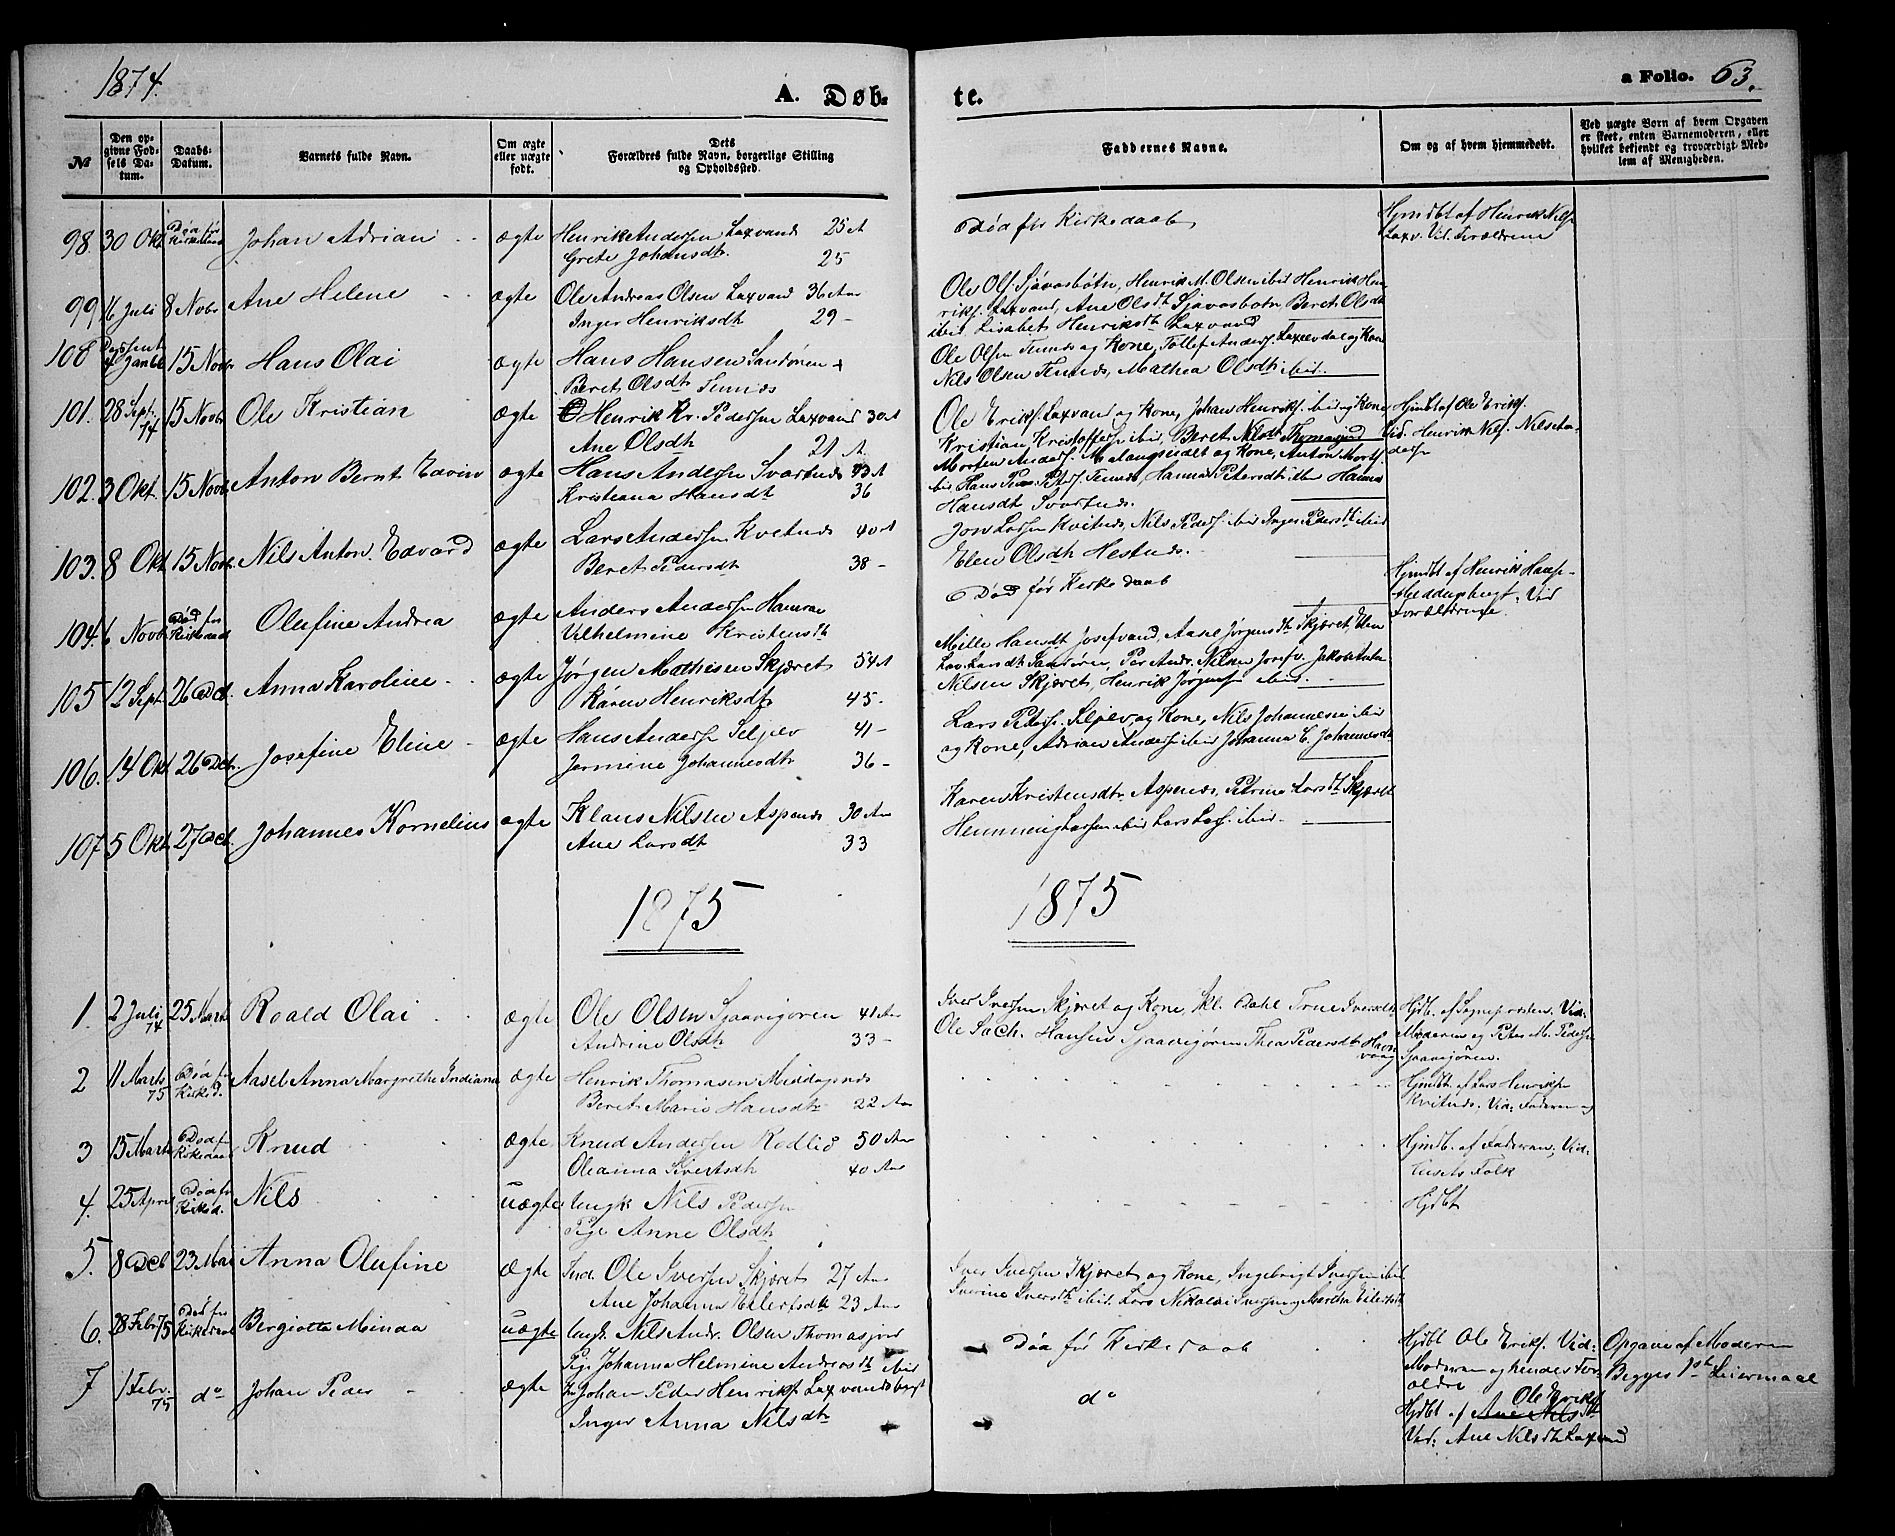 1874.
A. Døb-
te.
a Folio. 63.
№
Den op-
givne Fød-
sels Da-
tum.
Daabs-
Datum.
Barnets fulde Navn.
Om ægte
eller uægte
født.
Dets
Forældres fulde Navn, borgerlige Stilling
og Opholdssted.
Faddernes Navne.
Om og af hvem hjemmedøbt.
Ved uægte Børn af hvem Opgaven
er skeet, enten Barnemoderen, eller
hvilket bekjendt og troværdigt Med-
lem af Menigheden.
98. 30 Okt Død før Kirkedaab Johan Adrian ægte Henrik Andersen Laxvand 25 A
Grete Johansdt. 25
Død før Kirkedaab
Hjmdbt af Henrik Nils.
Laxv. Vid. Forældrene
99 6 Juli 8 Novbr Ane Helene ægte Ole Andreas Olsen Laxvand 36 Aar
Inger Henriksdt 29 -
Ole Ols. Sjåvasbotn, Henrik M. Olsen ibid Henrik Hen
riks. Laxvand, Ane Olsdt Sjåvasbotn, Beret Olsdt
ibid Lisabet Henriksdt Laxvand
100 15 Novbr Hans Olai ægte Hans Hansen Sandøren
Beret Olsdt Tennes
Ole Olsen Tennes og Kone, Tollef Anders. Laxelvdal og Kone
Nils Olsen Tennes, Mathea Olsdt ibid.
101. 28 Sept. 74 15 Novbr Ole Kristian ægte Henrik Kr. Pedersen Laxvand 30 A
Ane Olsdt 21 A
Ole Eriks. Laxvand og Kone, Johan Henriks. ibid og Kone
Kristian Kristoffersen ibid, Beret Nilsdt Thomasjord
Hjmbt af Ole Eriks.
Vid. Henrik Nils. Nils An-
ders
102. 3 Okt. 15 Novbr Anton Bernt Edvin ægte Hans Andersen Svartnes 43 A
Kristiana Hansdt 36
Morten Anders. Malangseidet og Kone, Anton Morts.
ibid Hans Peters. Tennes, Hanna Petersdt ibid Hanna
Hansdt Svartnes.
103. 8 Okt 15 Novbr. Nils Anton Edvard ægte Lars Andersen Kvitnes 40 A
Beret Pedersdt 38 -
Jon Larsen Kvitnes, Nils Peders. ibid Inger Pedersdt ibid
Elen Olsdt Hestnes.
104. 6 Novbr Død før Kirkedaab Olufine Andrea ægte Anders Andersen Hamra
Vilhelmine Kristensdt
Død før Kirkedaab
Hjmdbt af Henrik Hans.
Middagsbugt. Vid
Forældrene.
105 12 Sept. 26 Dcb. Anna Karoline ægte Jørgen Mathisen Skjæret 54 A
Karen Henriksdt 45 -
Mille Hansdt Josefvand, Aase Jørgensdt Skjæret, Elen
Lov. Larsdt Sandøren, Per Andr. Nilsen Josefv. Jakob Anton
Nilsen Skjæret, Henrik Jørgens. ibid.
106. 14 Okt 26 Dcb. Josefine Eline ægte Hans Andersen Seljev 41 -
Jermine Johannesdt 36 -
Lars Peders. Seljev, og Kone, Nils Johannesen ibid
og Kone, Adrian Anders. ibid Johanna C. Johannesdt
107. 5 Okt. 27 Dcb. Johannes Kornelius ægte Klaus Nilsen Aspenes 30 Aar
Ane Larsdt 33
Karen Kristensdtr. Aspenes, Petrine Larsdt Skjæret
Hemming Larsen ibid Lars Lars. ibid.
1875
1875
1. 2 Juli 74 25 Marts Roald Olai ægte Ole Olsen Sjaavigøren 41 Aar
Andrine Olsdt 33 -
Iver Iversen Skjæret og Kone, Skl. Dahl Trine Iversdt
Ole Zach. Hansen Sjaavigøren Thea Pedersdt Havn
vaag
Hjdb. af Sognepresten. Vid.
Moderen og Peter M. Peders.
Sjaavigøren.
2 11 Marts 75 Død før Kirked. Aasel Anna Margrethe Indiana ægte Henrik Thomasen Middagsnes
Beret Marie Hansdt. 22 Aar
Hjmdbt. af Lars Henriks.
Kvitnes. Vid: Faderen
3 15 Marts Død før Kirkedaab Knud ægte Knud Andersen Rødlid 50 Aar
Oleanna Sivertsdt 40 Aar
Hjmdb. af Faderen, Vid.
Husets Folk
4. 25 April Død før Kirked. Nils uægte Ungk Nils Pedersen
Pige Anne Olsdt
Hjdbt
5. 8 Dcb 23 Mai Anna Olufine ægte Ind. Ole Iversen Skjæret 27 Aar
Ane Johanna Eilertsdt 23 Aar
Iver Iversen Skjæret og Kone, Ingebrigt Iversen ibid
Iverine Iversdt ibid. Lars Nikolai Iversen og Martha Eilertsdt
6. 28 Febr 75 Død før Kirkedaab Bergiotta Minda uægte Ungk. Nils Andr. Olsen Thomasjord
Pige Johanna Helmine Andreasdt ibid
Død før Kirkedaab
Hjdbt Ole Eriks. Vid:
Moderen og hendes For
ældre
Opgave af Moderen
Begges 1ste Leiermaal
7 1 Febr. 75 do Johan Peder ægte In Johan Peder Henriks. Laxvandsbugt
Inger Anna Nilsdt
do
Ole Eriks.
Hjdbt af Ane Nilsdt
Vid: Ane Nilsdt Laxvand